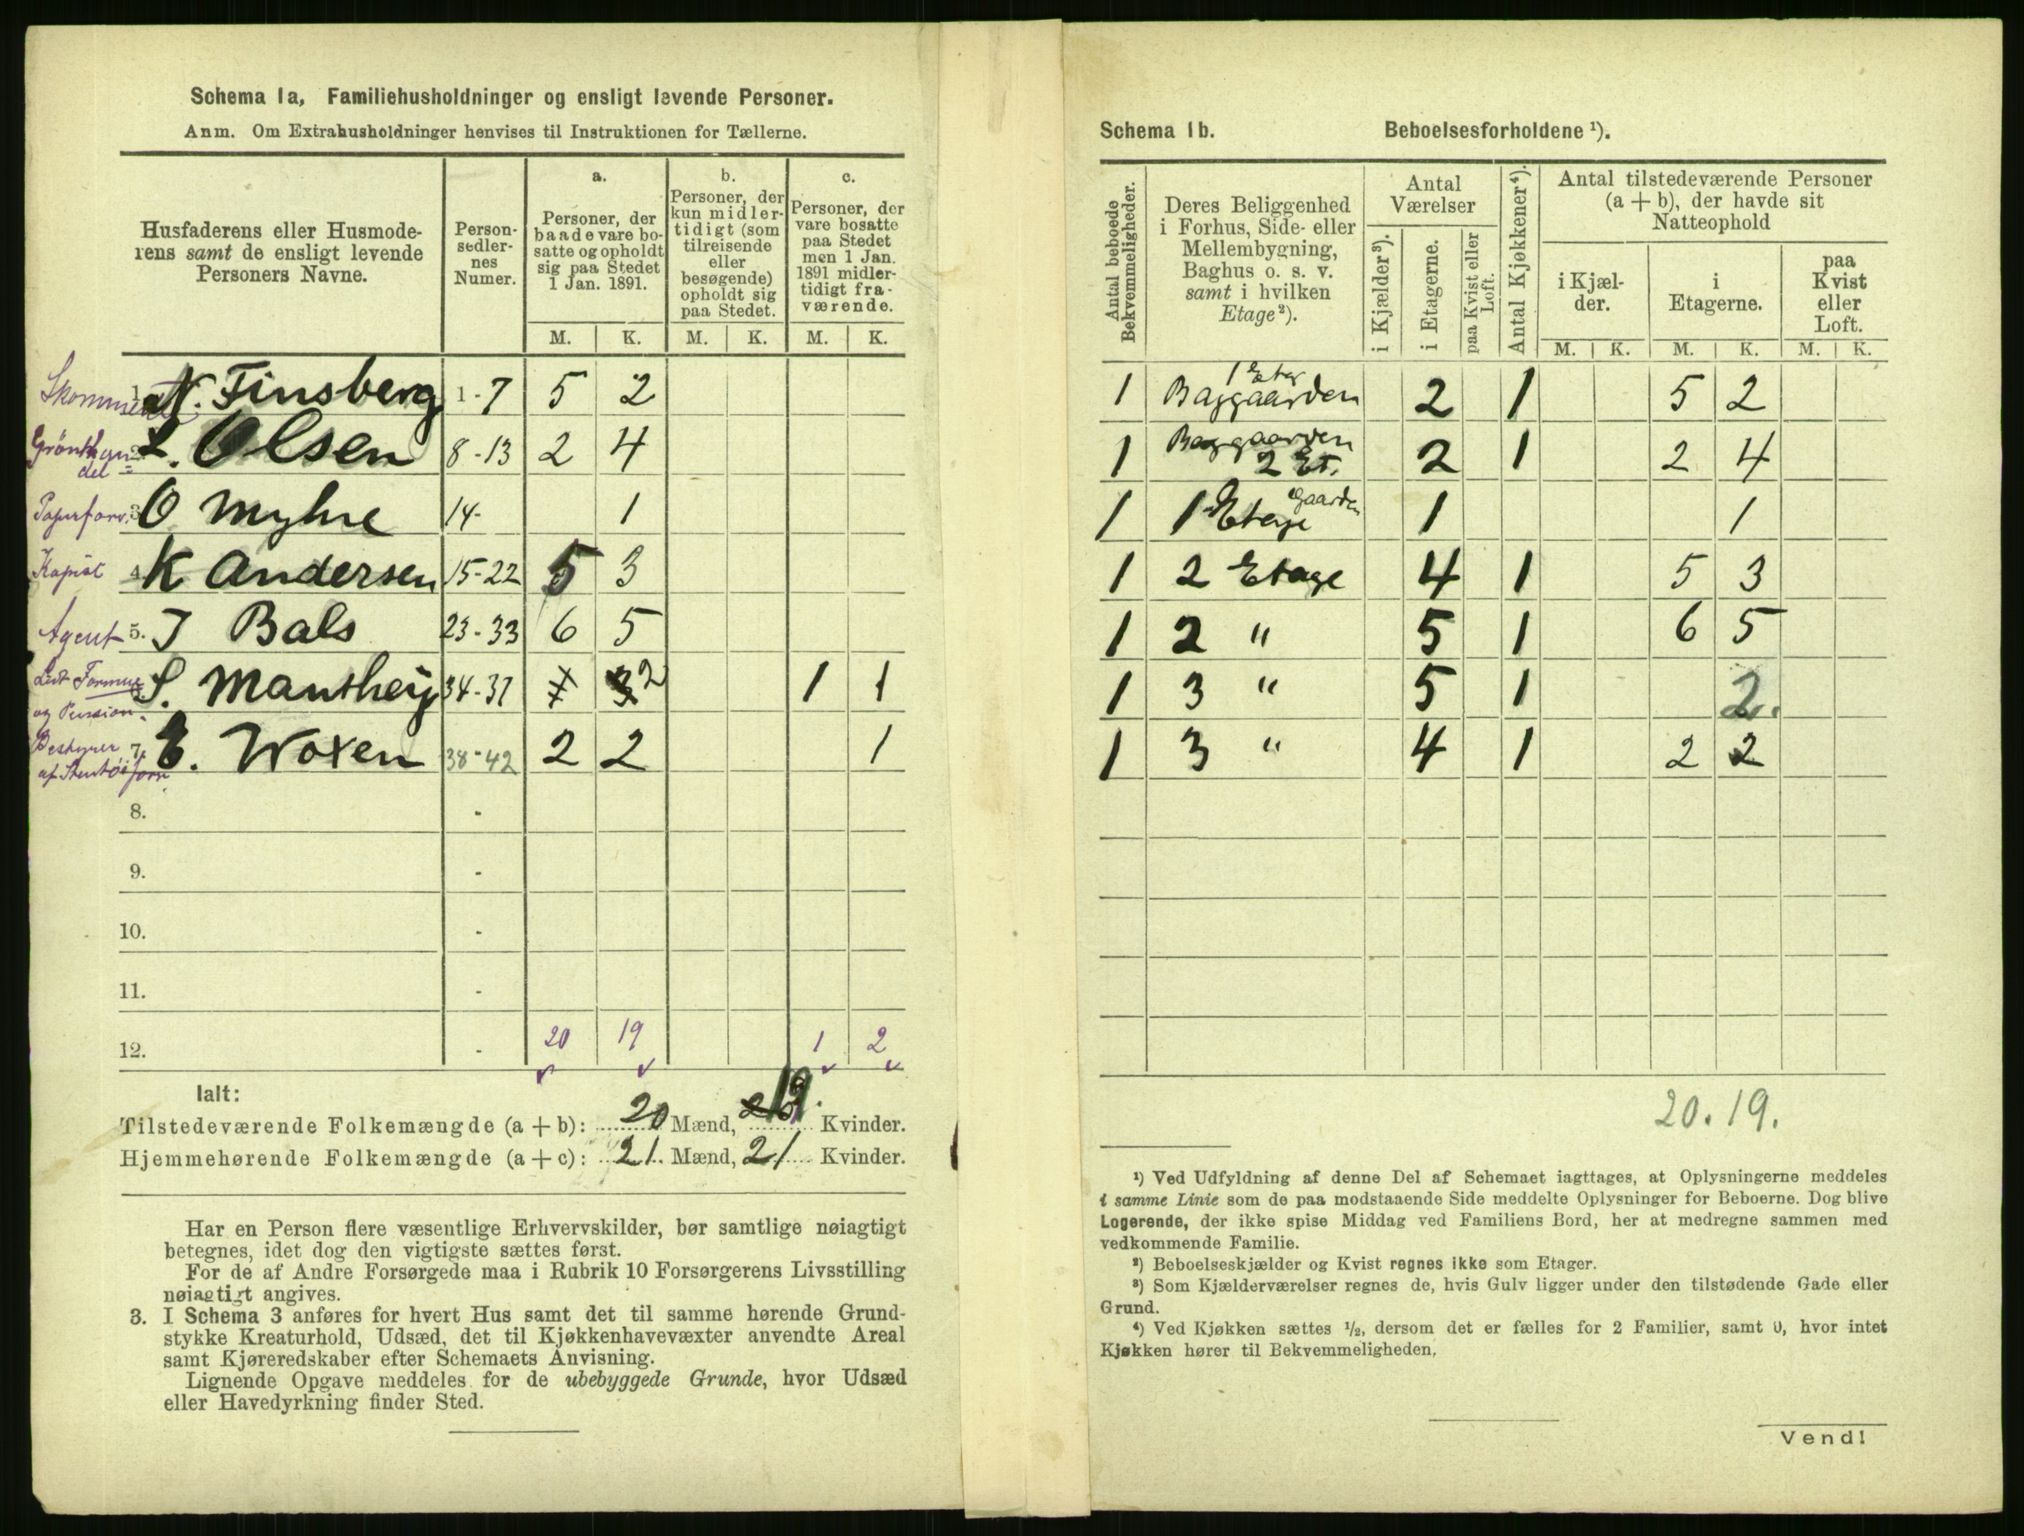 Schema 1a, Familiehusholdninger og ensligt levende Personer.
Anm. Om Extrahusholdninger henvises til Instruktionen for Tællerne.
Husfaderens eller Husmoderens samt de ensligt levende Personers Navne.
Personsedlernes Numer.
a. Personer, der baade vare bosatte og opholdt sig paa Stedet 1 Jan. 1891.
b. Personer, der kun midlertidigt (som tilreisende eller besøgende) opholdt sig paa Stedet.
c. Personer, der vare bosatte paa Stedet men 1 Jan. 1891 midlertidigt fraværende.
M. K. M. K. M. K.
1. N. Finsberg 1-7 5 2
Grønthandel 2. L. Olsen 8-13 2 4
Papirforr. 3. O Myhre 14- 1
Kopist 4. K Andersen 15-22 5 3
Agent 5. J Bals 23-33 6 5
Lidt Formue og Pension. S. Manthey 34-37 2 1 1
Bestyrer 7. E. Woxen 38-42 2 2 1
8. -
9. -
10. -
11. -
12. - 20 19 1 2
Ialt:
Tilstedeværende Folkemængde (a + b): 20 Mænd, 19. Kvinder.
Hjemmehørende Folkemængde (a + c): 21 Mænd, 21 Kvinder.
Har en Person flere væsentlige Erhvervskilder, bør samtlige nøiagtigt
betegnes, idet dog den vigtigste sættes først.
For de af Andre Forsørgede maa i Rubrik 10 Forsørgerens Livsstilling
nøiagtigt angives.
3. I Schema 3 anføres for hvert Hus samt det til samme hørende Grund-
stykke Kreaturhold, Udsæd, det til Kjøkkenhavevæxter anvendte Areal
samt Kjøreredskaber efter Schemaets Anvisning.
Lignende Opgave meddeles for de ubebyggede Grunde, hvor Udsæd
eller Havedyrkning finder Sted.
Schema 1b. Beboelsesforholdene ¹).
Antal beboede Bekvemmeligheder.
Deres Beliggenhed i Forhus, Side- eller Mellembygning, Baghus o. s. v. samt i hvilken Etage²).
Antal Værelser
i Kjælder³).
i Etagerne.
paa Kvist eller Loft.
Antal Kjøkkener⁴).
Antal tilstedeværende Personer (a + b), der havde sit Natteophold
i Kjælder.
i Etagerne.
paa Kvist eller Loft.
M. K. M. K. M. K.
1 1 Etag Baggaarden 2 1 5 2
1 Baggaarden 2 Et. 2 1 2 4
1 1 Etage Gaarden 1 1
1 2 Etage 4 1 5 3
1 2 " 5 1 6 5
1 3 " 5 1 2.
1 3 " 4 1 2 2
20. 19.
¹) Ved Udfyldning af denne Del af Schemaet iagttages, at Oplysningerne meddeles
i samme Linie som de paa modstaaende Side meddelte Oplysninger for Beboerne. Dog blive
Logerende, der ikke spise Middag ved Familiens Bord, her at medregne sammen med
vedkommende Familie.
²) Beboelseskjælder og Kvist regnes ikke som Etager.
³) Som Kjælderværelser regnes de, hvis Gulv ligger under den tilstødende Gade eller
Grund.
⁴) Ved Kjøkken sættes ½, dersom det er fælles for 2 Familier, samt 0, hvor intet
Kjøkken hører til Bekvemmeligheden.
Vend!